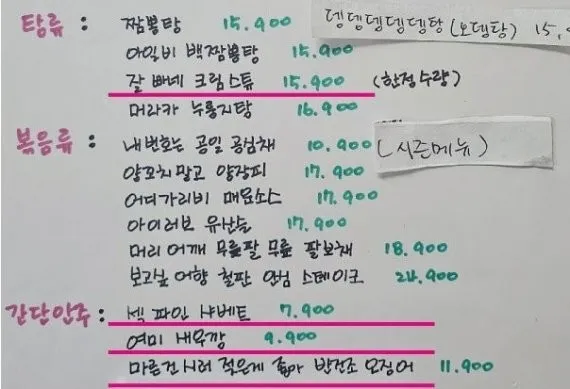 탕류 : 짬뽕탕 15.900
뎅뎅뎅뎅뎅탕(오뎅탕) 15.
아익비 백짬뽕탕 15.900
잘 빠네 크림스튜 15.900 (한정수량)
머라카 누룽지탕 16.900
볶음류 : 내번호는 공일 공심채 10.900 (시즌메뉴)
양꼬치말고 양장피 17.900
어디가리비 매운소스 17.900
아이러브 유산슬 17.900
머리 어깨 무릎팔 무릎 팔보채 18.900
보고싶 어향 철판 안심 스테이크 24.900
간단안주 : 섹 파인 샤베트 7.900
여미 새우깡 9.900
마른건시러 적은게 좋아 반건조 오징어 11.900